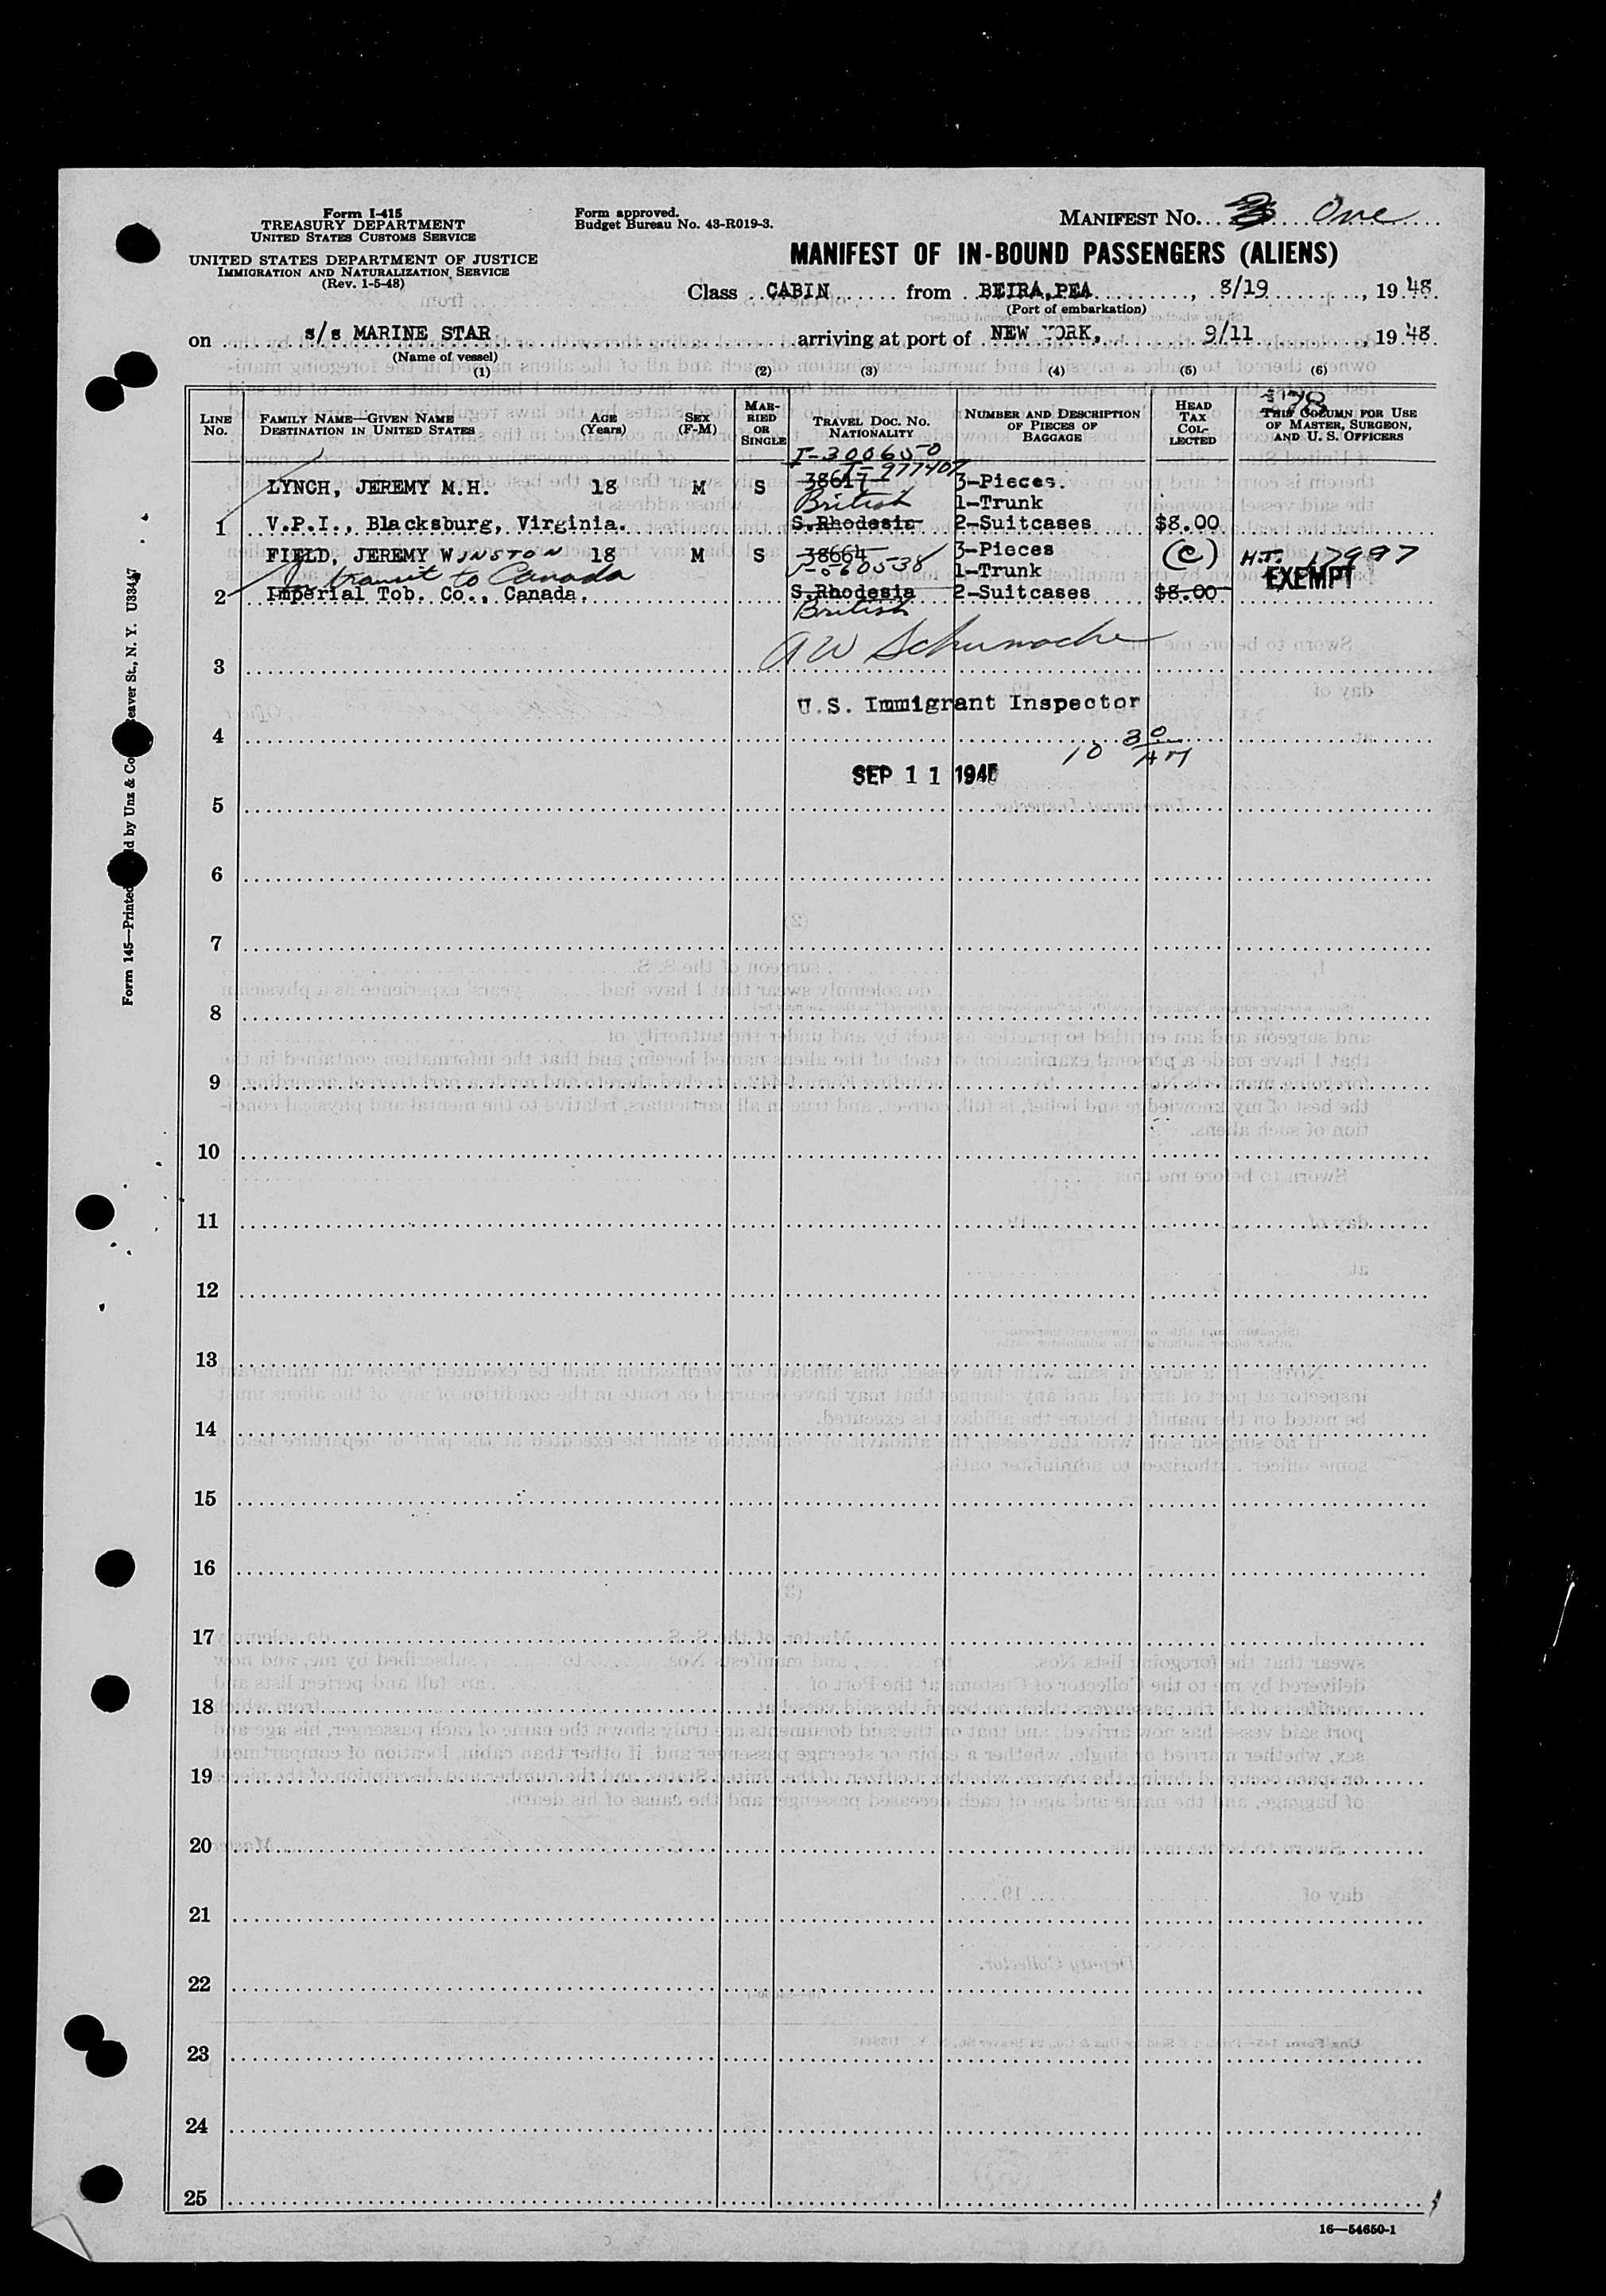 Form I-415
TREASURY DEPARTMENT
UNITED STATES CUSTOMS SERVICE
UNITED STATES DEPARTMENT OF JUSTICE
IMMIGRATION AND NATURALIZATION SERVICE
(Rev. 1-5-48)
Form approved.
Budget Bureau No. 43-R019-3.
MANIFEST NO. One
MANIFEST OF IN-BOUND PASSENGERS (ALIENS)
Class CABIN from BEIRA,PEA, 8/19, 1948.
(Port of embarkation)
on s/s MARINE STAR arriving at port of NEW YORK, 9/11, 1948.
(Name of vessel)
(1) (2) (3) (4) (5) (6)
LINE No. FAMILY NAME—GIVEN NAME DESTINATION IN UNITED STATES AGE (Years) SEX (F-M) MARRIED OR SINGLE TRAVEL DOC. NO. NATIONALITY NUMBER AND DESCRIPTION OF PIECES OF BAGGAGE HEAD TAX COLLECTED THIS COLUMN FOR USE OF MASTER, SURGEON, AND U. S. OFFICERS
I-300650
I-977407
LYNCH, JEREMY M.H. 18 M S 38617 3-Pieces.
British 1-Trunk
1 V.P.I., Blacksburg, Virginia. S.Rhodesia 2-Suitcases $8.00
FIELD, JEREMY WINSTON 18 M S 38664 3-Pieces (C) H.T. 17997
In transit to Canada 1-Trunk EXEMPT
2 Imperial Tob. Co., Canada. S.Rhodesia 2-Suitcases $8.00
British
A W Schumache
3
U.S. Immigrant Inspector
4
10 30 AM
SEP 11 194
5
6
7
8
9
10
11
12
13
14
15
16
17
18
19
20
21
22
23
24
25
16—54650-1
Form 145—Printed
ld by Unz & Co
eaver St., N. Y. U33447